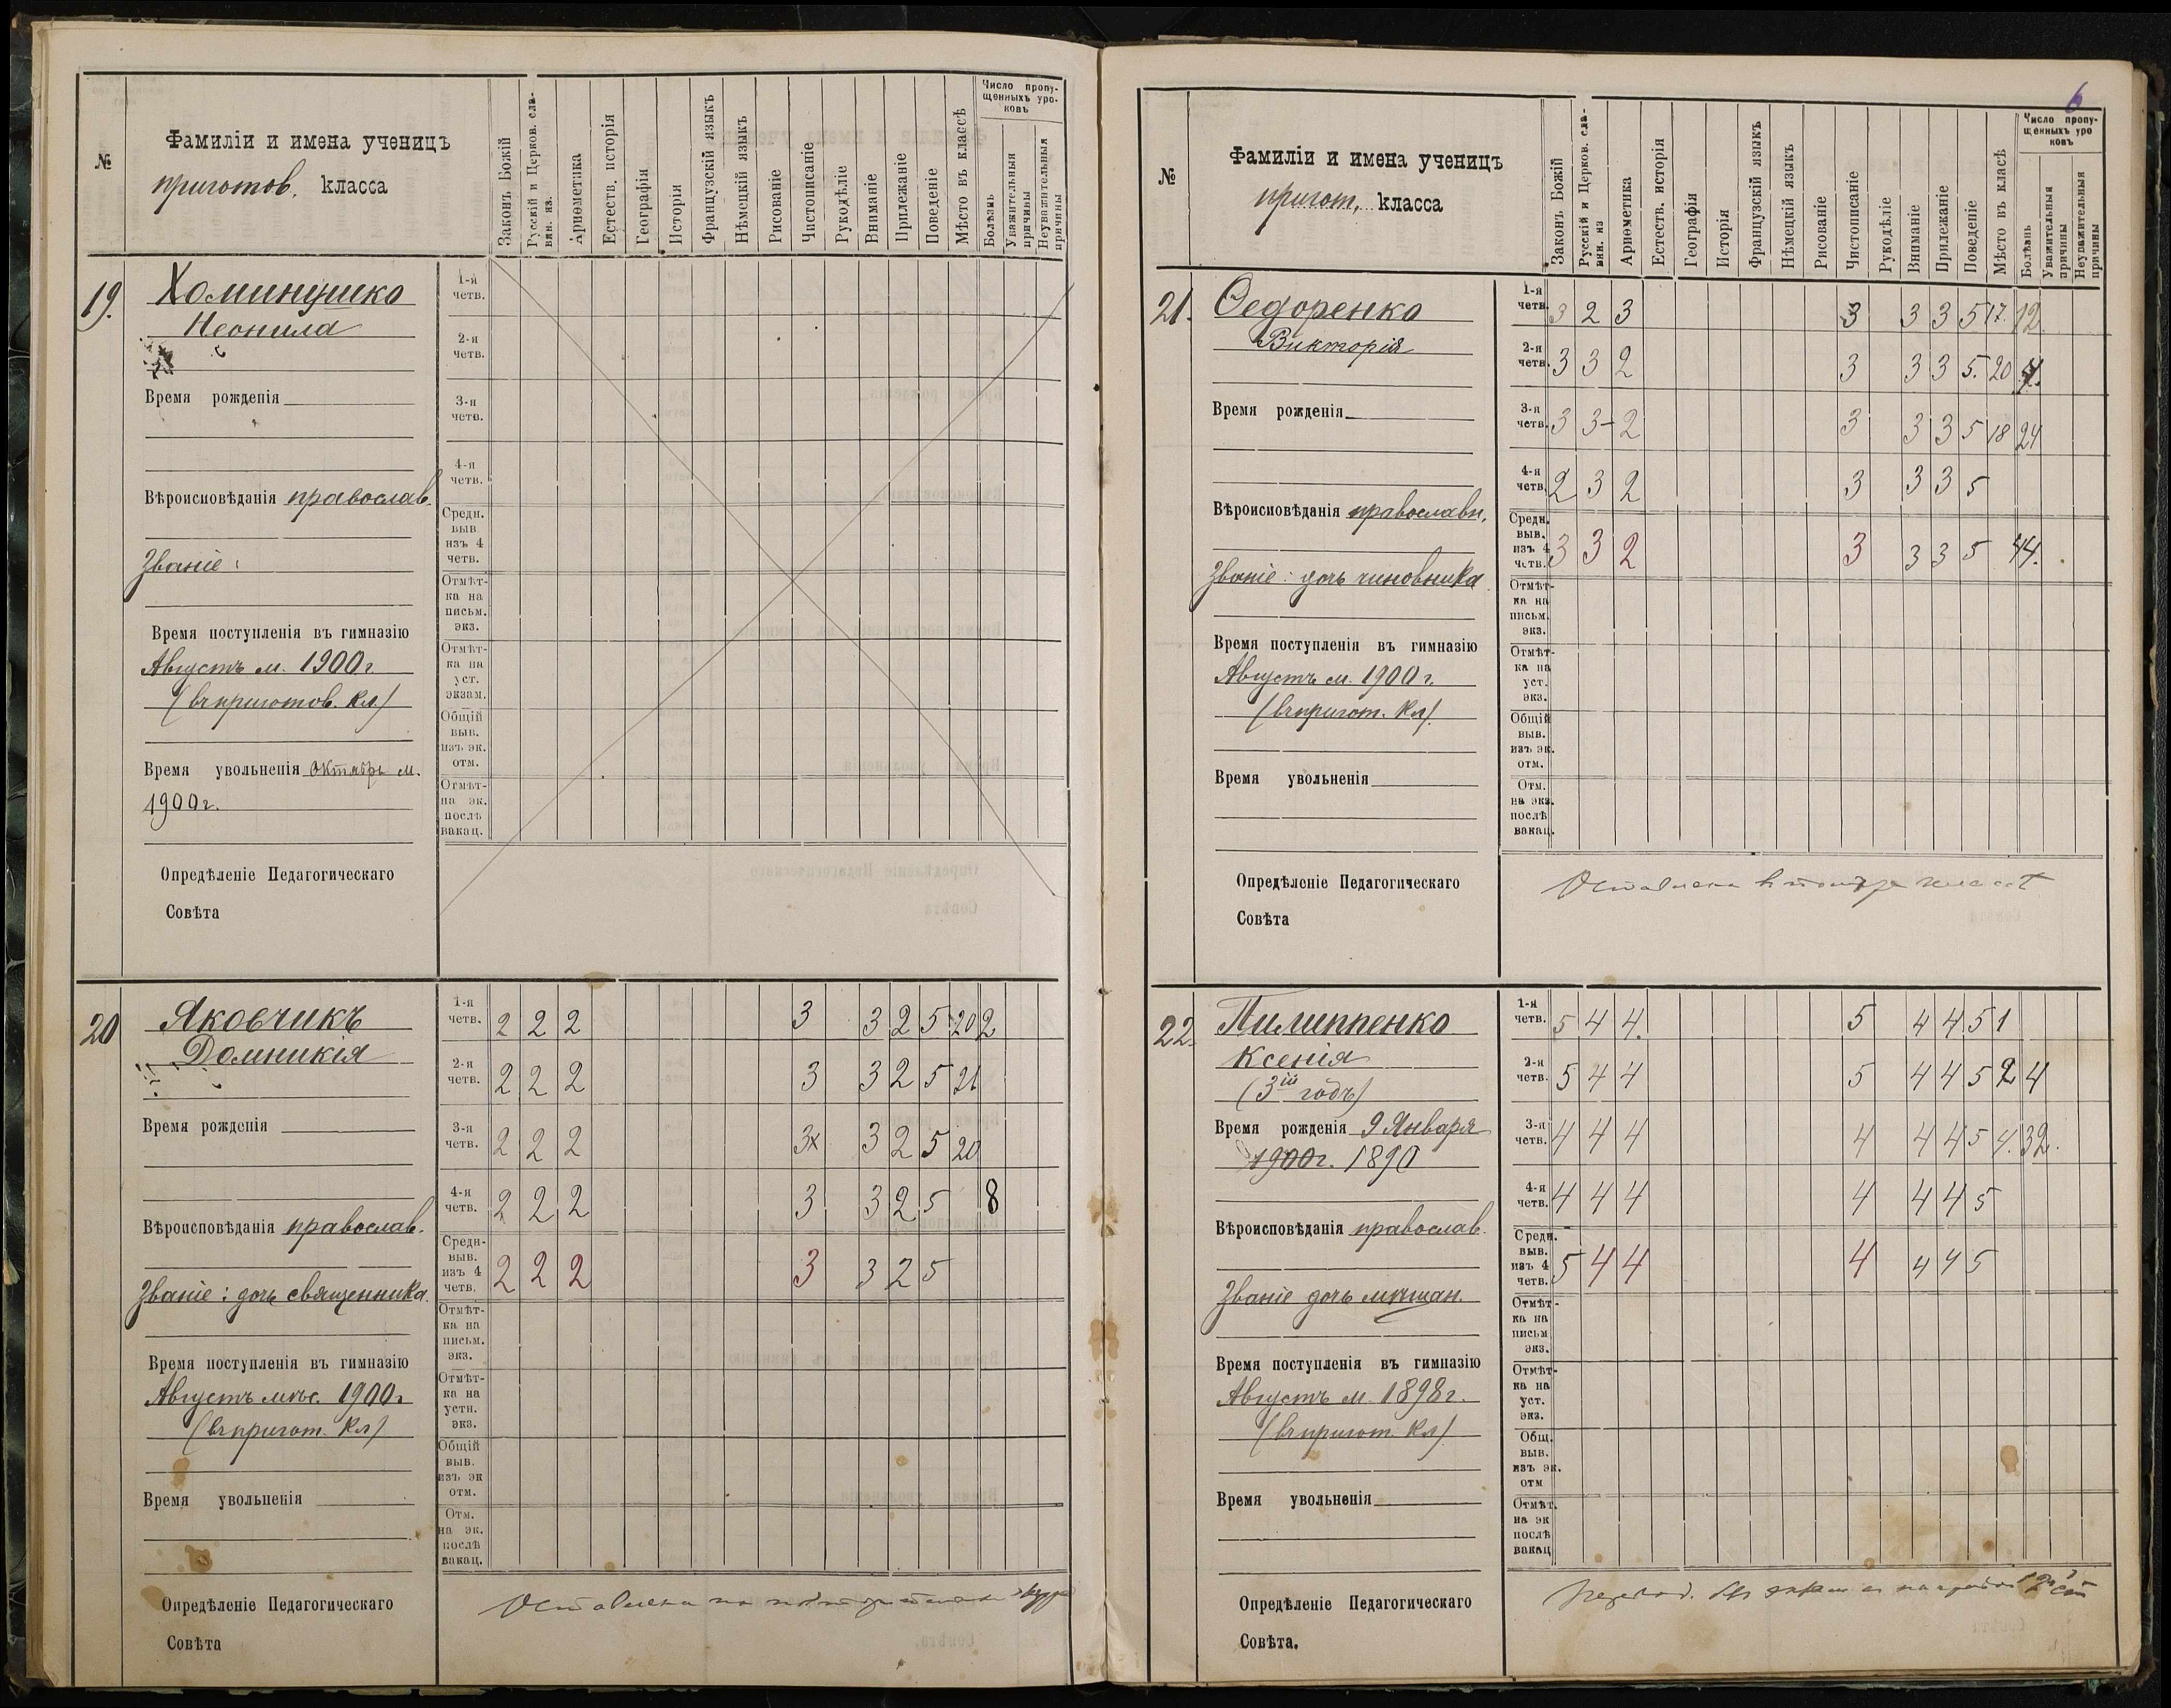 №
Фамиліи и имена ученицъ
приготов. класса
Законъ Божій
Русскій и Церков. сла-
вян. яз.
Ариѳметика
Естеств. исторія
Географія
Исторія
Французскій языкъ
Нѣмецкій языкъ
Рисованіе
Чистописаніе
Рукодѣліе
Вниманіе
Прилежаніе
Поведеніе
Мѣсто въ классѣ
Число пропу-
щенныхъ уро-
ковъ
Болѣзнь
Уважительныя
причины
Неуважительныя
причины
19.
Хоминушко
Неонила
Время рожденія
Вѣроисповѣданія православ.
Званіе:
Время поступленія въ гимназію
Августъ м. 1900 г.
(въ приготов. кл)
Время увольненія Октябрь м.
1900 г.
Опредѣленіе Педагогическаго
Совѣта
1-я
четв.
2-я
четв.
3-я
четв.
4-я
четв.
Средн.
выв
изъ 4
четв.
Отмѣт-
ка на
письм.
экз.
Отмѣт-
ка на
уст.
экзам.
Общій
выв.
изъ эк.
отм.
Отмѣт-
на эк.
послѣ
вакац.
20
Яковчикъ
Домникія
Время рожденія
Вѣроисповѣданія православ.
Званіе: дочь священника.
Время поступленія въ гимназію
Августъ мѣс. 1900 г
(въ пригот. кл)
Время увольненія
Опредѣленіе Педагогическаго
Совѣта
1-я
четв. 2 2 2 3 3 2 5 20 2
2-я
четв. 2 2 2 3 3 2 5 21
3-я
четв. 2 2 2 3x 3 2 5 20
4-я
четв. 2 2 2 3 3 2 5 8
Средн-
выв.
изъ 4
четв. 2 2 2 3 3 2 5
Отмѣт-
ка на
письм.
экз.
Отмѣт-
ка на
устн.
экз.
Общій
выв.
изъ эк
отм.
Отм.
на эк.
послѣ
вакац.
Оставлена на
6
№
Фамиліи и имена ученицъ
пригот. класса
Законъ Божій
Русскій и Церков. сла-
вян. яз
Ариѳметика
Естеств. исторія
Географія
Исторія
Французскій языкъ
Нѣмецкій языкъ
Рисованіе
Чистописаніе
Рукодѣліе
Вниманіе
Прилежаніе
Поведеніе
Мѣсто въ класѣ
Число пропу-
щенныхъ уро
ковъ
Болѣзнь
Уважительныя
причины
Неуважительныя
причины
21.
Федоренко
Викторія
Время рожденія
Вѣроисповѣданія православн.
Званіе: дочь чиновника
Время поступленія въ гимназію
Августъ м. 1900 г.
(въ пригот. кл).
Время увольненія
Опредѣленіе Педагогическаго
Совѣта
1-я
четв. 3 2 3 3 3 3 5 17. 12.
2-я
четв. 3 3 2 3 3 3 5. 20 4.
3-я
четв. 3 3- 2 3 3 3 5 18 24
4-я
четв. 2 3 2 3 3 3 5
Средн.
выв.
изъ 4
четв. 3 3 2 3 3 3 5 44.
Отмѣт-
ка на
письм.
экз.
Отмѣт-
ка на
уст.
экз.
Общій
выв.
изъ эк.
отм.
Отм.
на экз.
послѣ
вакац.
Оставлена въ классѣ
22.
Пилиппенко
Ксенія
(3ій годъ)
Время рожденія 9 Января
1900 г. 1890
Вѣроисповѣданія православ.
Званіе дочь мѣщан.
Время поступленія въ гимназію
Августъ м. 1898 г.
(въ пригот. кл)
Время увольненія
Опредѣленіе Педагогическаго
Совѣта.
1-я
четв. 5 4 4. 5 4 4 5 1
2-я
четв. 5 4 4 5 4 4 5 2 4
3-я
четв. 4 4 4 4 4 4 5 4. 32.
4-я
четв. 4 4 4 4 4 4 5
Средн.
выв.
изъ 4
четв. 5 4 4 4 4 4 5
Отмѣт-
ка на
письм
экз.
Отмѣт-
ка на
уст.
экз.
Общ.
выв.
изъ эк.
отм
Отмѣт.
на эк
послѣ
вакац
Перевод. без экзам. с наградой